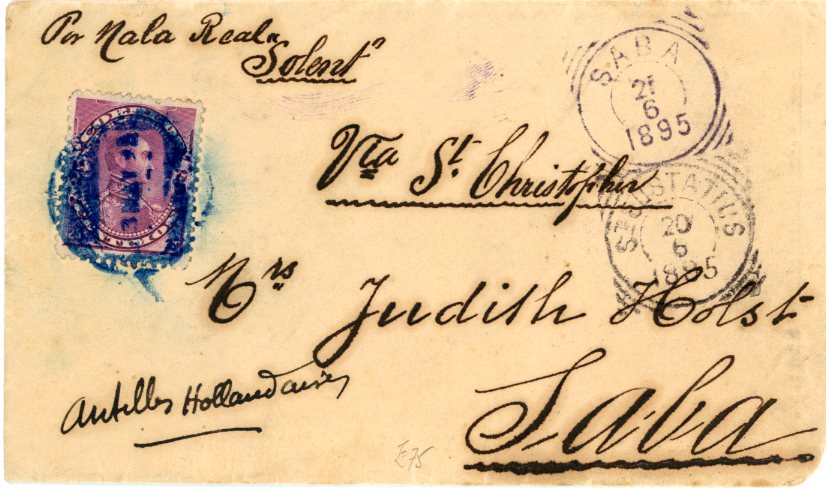 Por Mala Real "
Solent"
SABA
21
6
1895
Via St. Christopher
ST EUSTATIUS
20
6
1895
Mrs
Judith Holst
Antilles Hollandaises
Saba
E75